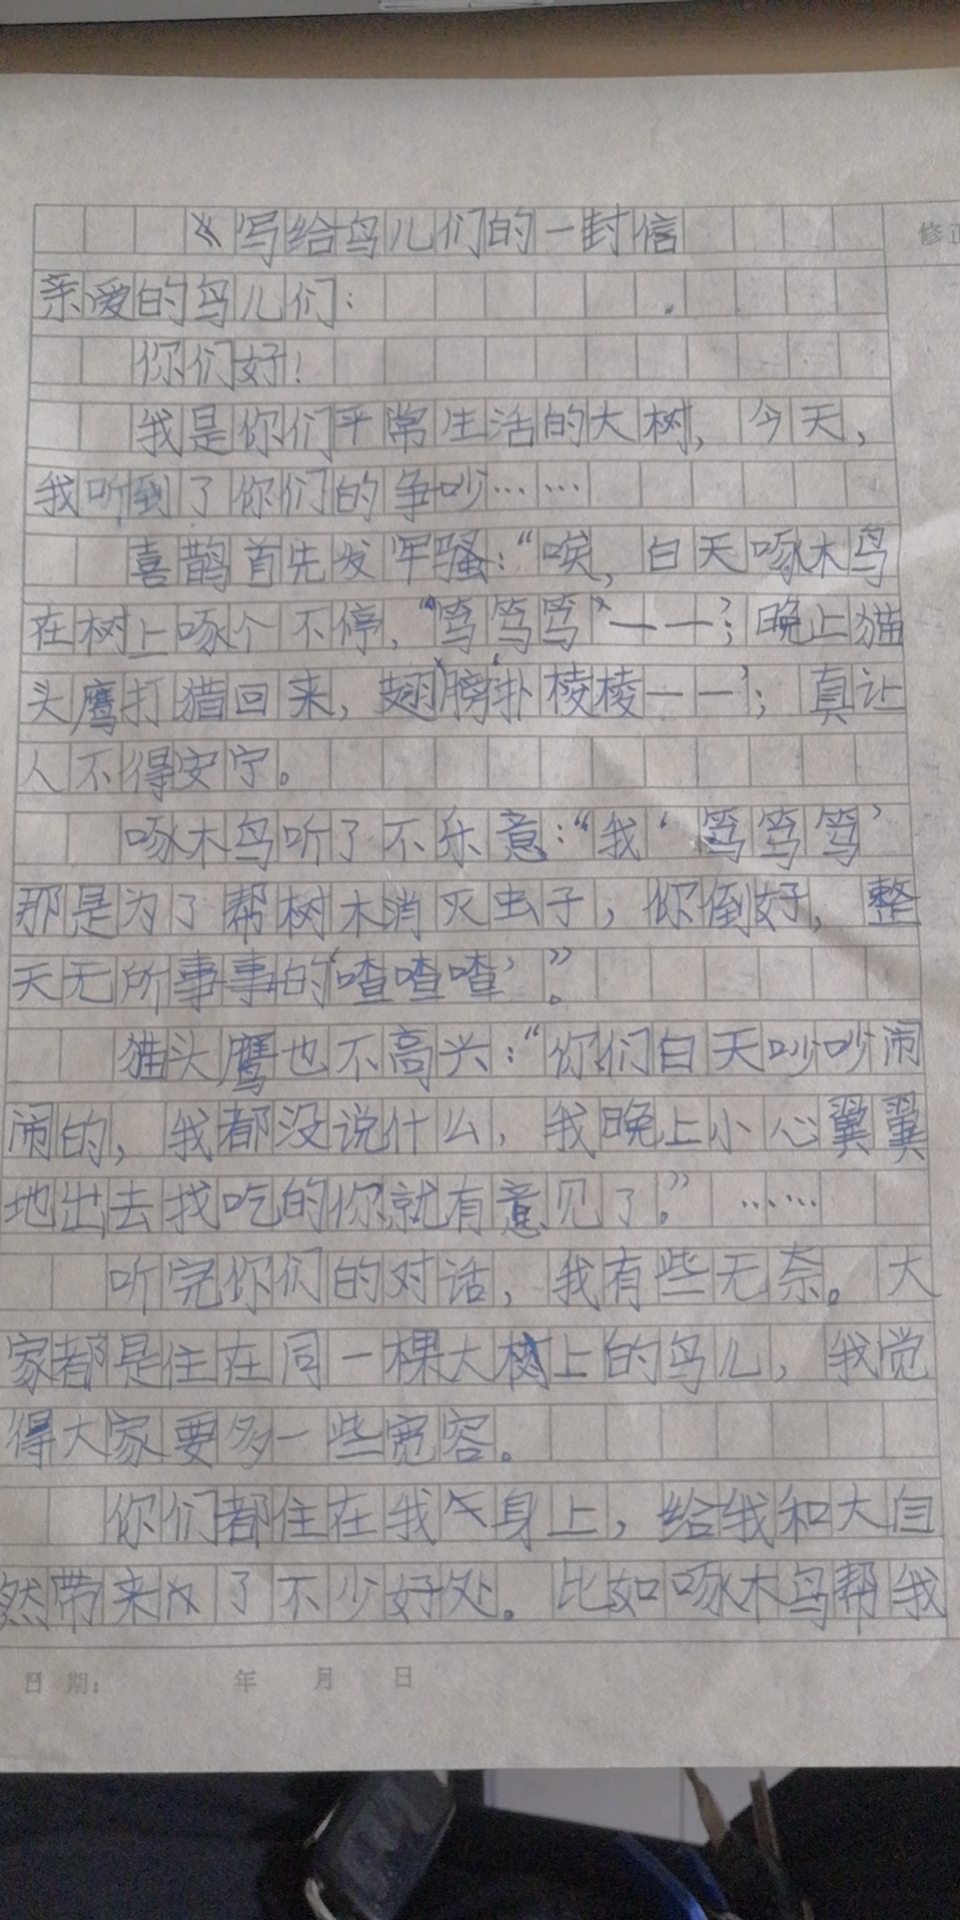 写给鸟儿们的一封信
修正
亲爱的鸟儿们：
你们好！
我是你们平常生活的大树，今天，
我听到了你们的争吵……
喜鹊首先发牢骚：“唉，白天啄木鸟
在树上啄个不停，“笃笃笃”——；晚上猫
头鹰打猎回来，翅膀‘扑棱棱——’；真让
人不得安宁。
啄木鸟听了不乐意：“我‘笃笃笃’
那是为了帮树木消灭虫子，你倒好，整
天无所事事的‘喳喳喳’”。
猫头鹰也不高兴：“你们白天吵吵闹
闹的，我都没说什么，我晚上小心翼翼
地出去找吃的你就有意见了。”……
听完你们的对话，我有些无奈。大
家都是住在同一棵大树上的鸟儿，我觉
得大家要多一些宽容。
你们都住在我身上，给我和大自
然带来了不少好处。比如啄木鸟帮我
日期： 年 月 日